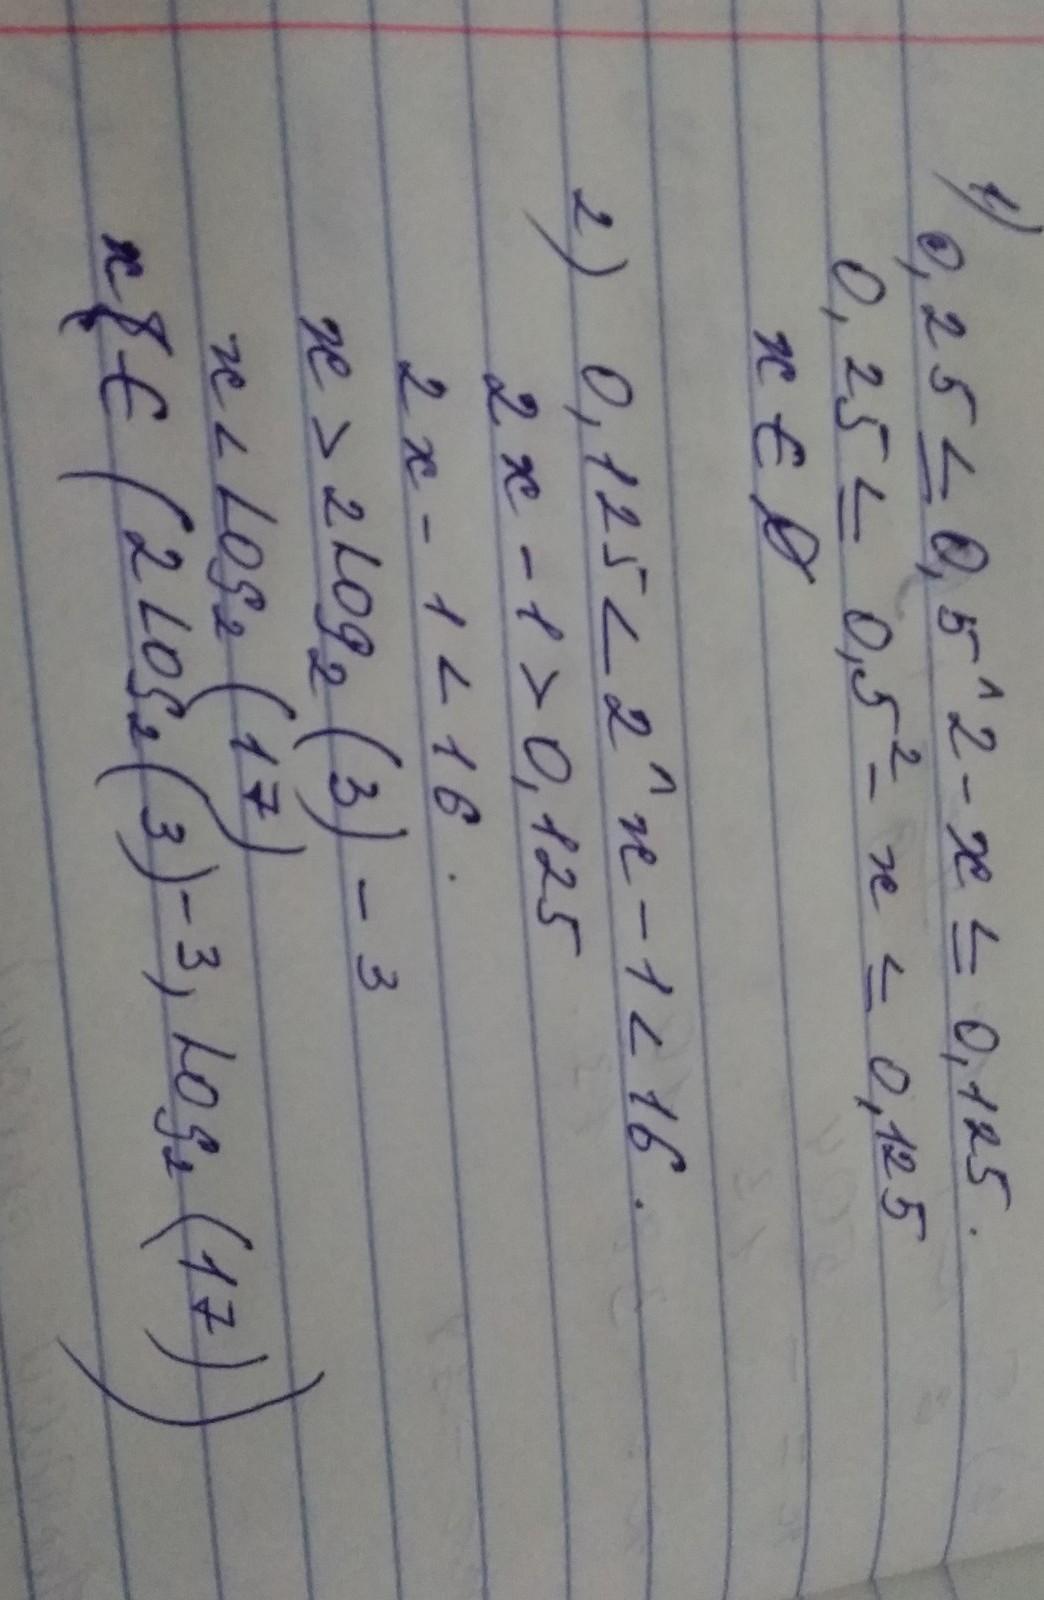 1) 0,25 ≤ 0,5^2-x ≤ 0,125.
0,25 ≤ 0,5² - x ≤ 0,125
x ∈ ∅
2) 0,125 < 2^x - 1 < 16.
2x - 1 > 0,125
2x - 1 < 16.
x > 2Log₂(3) - 3
x < Log₂(17)
x ∈ (2Log₂(3) - 3, Log₂(17))